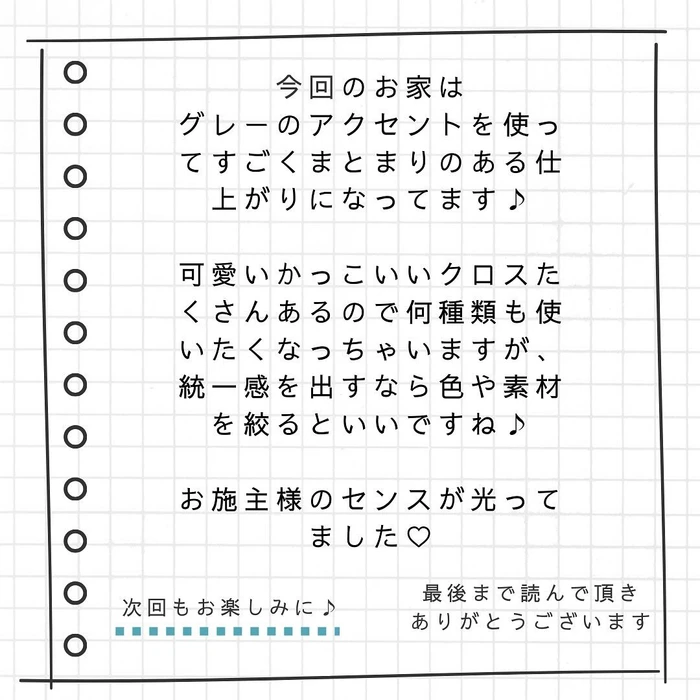 今回のお家は
グレーのアクセントを使っ
てすごくまとまりのある仕
上がりになってます♪
可愛いかっこいいクロスた
くさんあるので何種類も使
いたくなっちゃいますが、
統一感を出すなら色や素材
を絞るといいですね♪
お施主様のセンスが光って
ました♡
次回もお楽しみに♪
最後まで読んで頂き
ありがとうございます